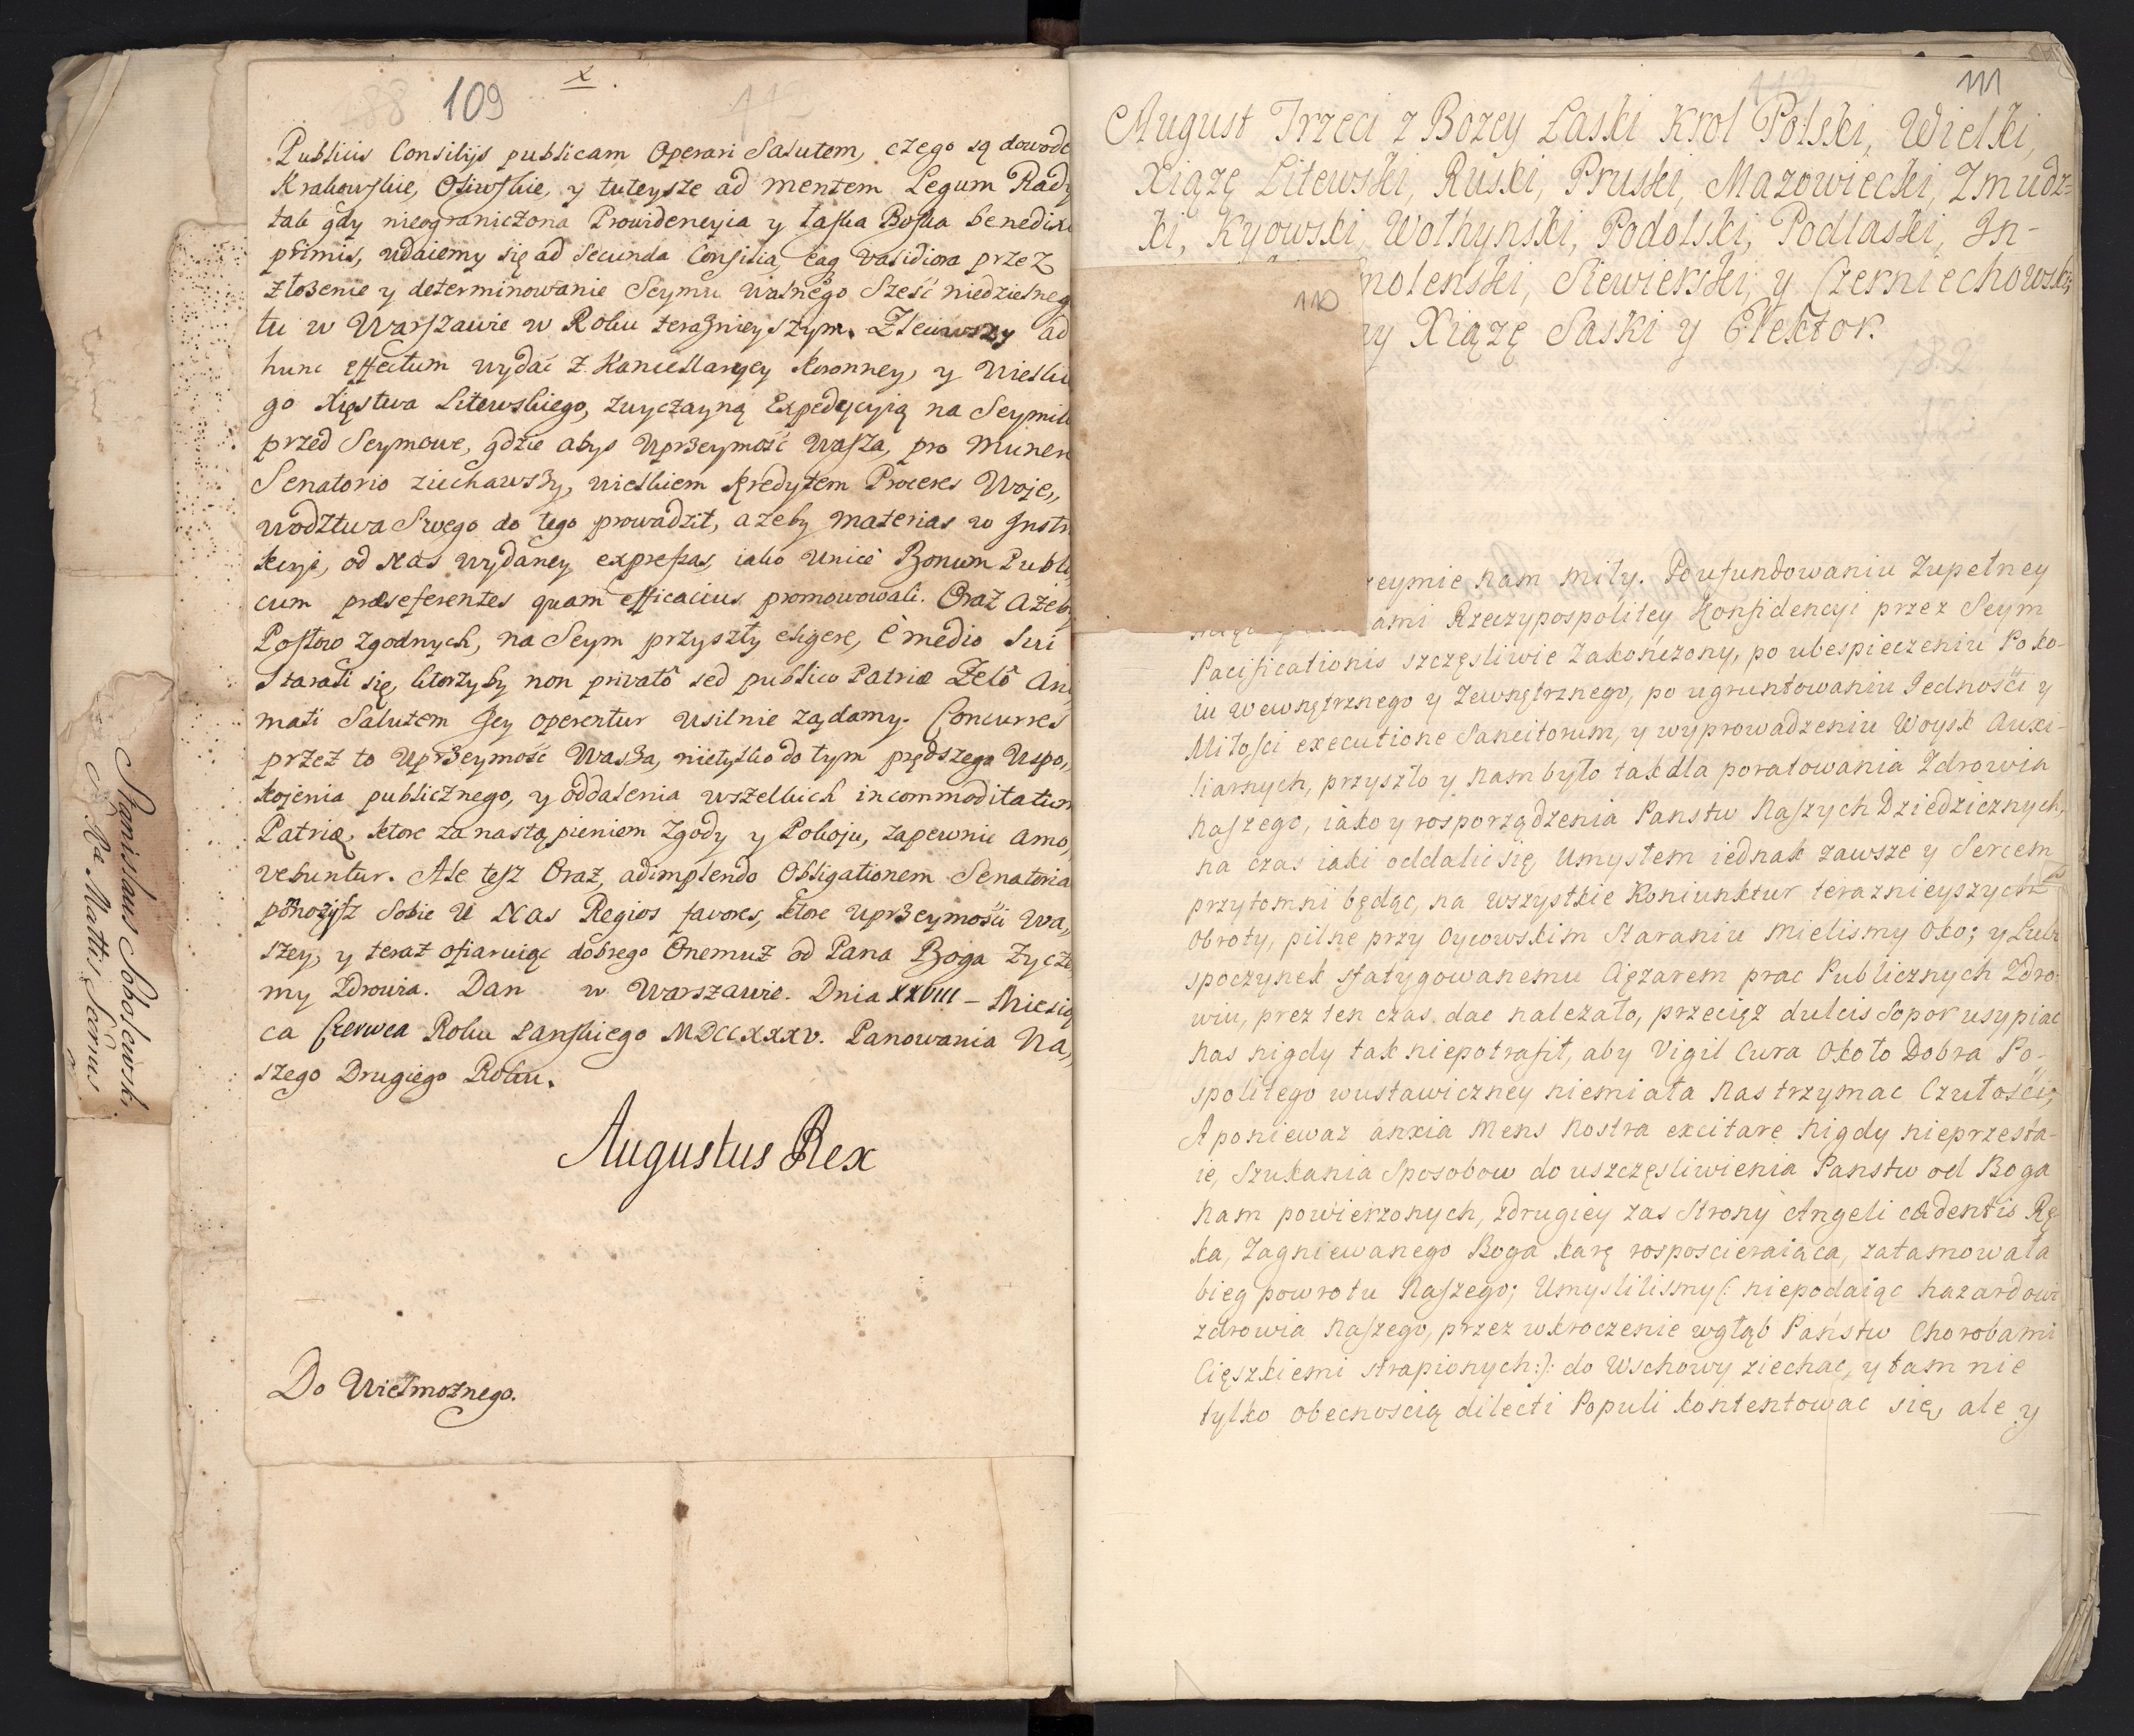 109
x
Publicis Consilijs publicam Operari Salutem, czego są dowode
Krakowskie, Oliwskie, y tuteysze ad mentem Legum Rady
tak gdy nieograniczona Prowidencyia y łaska Boska benedix
primis, udaiemy się ad Secunda Consilia, eaq validiora przez
złożenie y determinowanie Seymu walnego Sześć niedzielneg
tu w Warszawie w Roku teraznieyszym. Zleciwszy ad
hunc effectum wydać z Kancellaryey Koronney, y Wielki
go Xięstwa Litewskiego, zwyczayną Expedycyią na Seymik
przed Seymowe, gdzie abys Uprzeymość Wasza, pro Muner
Senatorio ziechawszy, wielkiem Kredytem Proceres Woje,,
wodztwa Swego do tego prowadził, azeby materias w Instr
kcyi, od Nas wydaney expressas, iako Unicè Bonum Publi
cum præseferentes quam efficacius promowowali. Oraz Azeby
Posłow zgodnych, na Seym przyszły eligere, è medio Sui
Starali się, ktorzyby non privatô sed publico Patriæ Zelô Ani
mati Salutem Jey operentur usilnie żądamy. Concurres
przez to Uprzeymość Wasza, nietylko do tym prędszego Uspo,,
kojenia publicznego, y oddalenia wszelkich incommoditatum
Patriæ, ktore za nastąpieniem Zgody y Pokoju, zapewnie amo,,
vebuntur. Ale tesz Oraz, adimplendo Obligationem Senatoria
pomożysz Sobie U Nas Regios favores, ktore Uprzeymości Wa,,
szey, y teraz ofiaruiąc dobrego Onemuż od Pana Boga życze
my Zdrowia. Dan w Warszawie. Dnia XXVIII – Miesią
ca Czerwca Roku Panskiego MDCCXXXV. Panowania Na,,
szego Drugiego Roku.
Augustus Rex
Do Wielmożnego.
Stanislaus Sobolewski
S. Ra Mattis Secrius
111
August Trzeci z Bozey Łaski Krol Polski, Wielki,
Xiążę Litewski, Ruski, Pruski, Mazowiecki, Zmudz=
ki, Kyowski, Wołhynski, Podolski, Podlaski, In-
molenski, Siewierski, y Czerniechowski,
ny Xiążę Saski y Elektor.
110
zeymie nam miły. Po ufundowaniu Zupełney
ami Rzeczypospolitey Konfidencyi przez Seym
Pacificationis szczęsliwie Zakończony, po ubespieczeniu Poko-
iu wewnętrznego y Zewnętrznego, po ugruntowaniu Jedności y
Miłości executione Sancitorum, y wyprowadzeniu Woysk Auxi-
liarnych, przyszło y Nam było tak dla poratowania Zdrowia
Naszego, iako y rosporządzenia Panstw Naszych Dziedzicznych,
na czas iaki oddalic się, Umysłem iednak zawsze y Sercem
przytomni będąc, na wszystkie Koniunktur teraznieyszych
Obroty, pilne przy Oycowskim Staraniu mielismy Oko; y Lubo
spoczynek sfatygowanemu Ciężarem prac Publicznych Zdro-
wiu, prez ten czas dac nalezało, przecięż dulcis Sopor usypiac
Nas nigdy tak niepotrafił, aby Vigil Cura Około Dobra Po-
spolitego wustawiczney niemiała Nas trzymac Czułości,
A poniewaz anxia Mens Nostra excitare nigdy nieprzesta-
ie, Szukania Sposobow do uszczęsliwienia Panstw od Boga
Nam powierzonych, zdrugiey zas Strony Angeli cædentis Rę-
ka, Zagniewanego Boga karę rosposcieraiąca, zatamowała
bieg powrotu Naszego; Umyslilismy (: niepodaiąc hazardowi
zdrowia Naszego, przez wkroczenie wgłąb Państw Chorobami
Cięszkiemi strapionych:): do Wschowy ziechac, y tam nie
tylko obecnoscią dilecti Populi kontentowac się, ale y